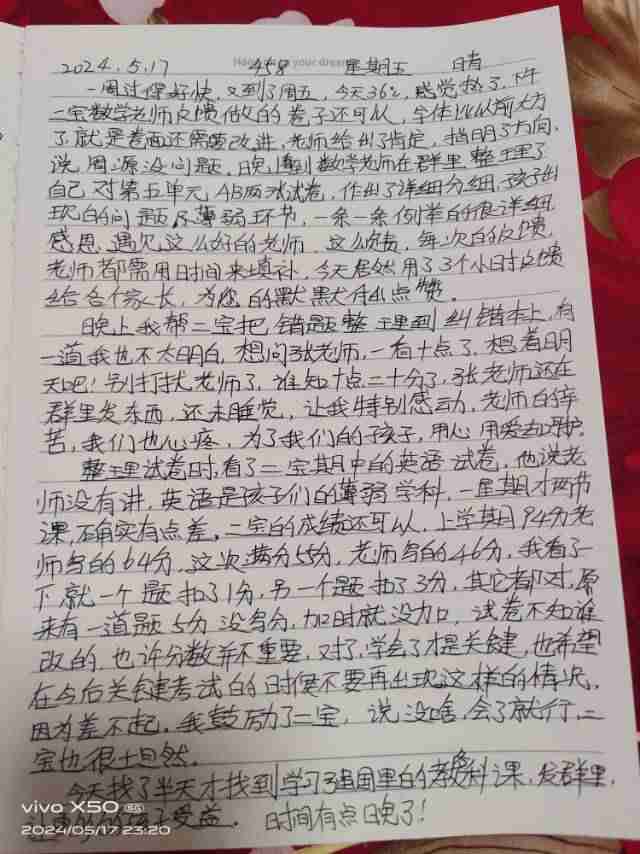 2024.5.17 458 星期五 晴
一周过得好快,又到了周五,今天36℃,感觉热了,下午
二宝数学老师反馈做的卷子还可以,字体比以前大方
了就是卷面还需要改进,老师给出了肯定,指明了方向,
说周源没问题。晚上看到数学老师在群里整理了
自己对第五单元AB两张试卷,作出了详细分细,孩子出
现的问题及薄弱环节,一条一条例举的很详细
感恩遇见这么好的老师,这么负责,每次的反馈
老师都需用时间来填补,今天居然用了3个小时反馈
给各个家长,为您的默默付出点赞。
晚上我帮二宝把错题整理到纠错本上,有
一道我也不太明白,想问张老师,一看十点了,想着明
天吧!别打扰老师了,谁知十点二十分了,张老师还在
群里发东西,还未睡觉,让我特别感动,老师的辛
苦,我们也心疼,为了我们的孩子,用心用爱去呵护。
整理试卷时,看了二宝期中的英语试卷,他说老
师没有讲,英语是孩子们的薄弱学科,一星期才两节
课,不确实有点差,二宝的成绩还可以,上学期94分老
师写的64分,这次满分55分,老师写的46分,我看了一
下就一个题扣了1分,另一个题扣了3分,其它都对,原
来有一道题5分没写分,加时就没加,试卷不知谁
改的,也许分数并不重要,对了,学会了才是关键,也希望
在今后关键考试的时候不要再出现这样的情况,
因为差不起,我鼓励了二宝,说没啥,会了就行,二
宝也很坦然。
今天找了半天才找到学习强国里的教科课,发群里,
孩子受益。时间有点晚了!
vivo X50 5G
2024/05/17 23:20